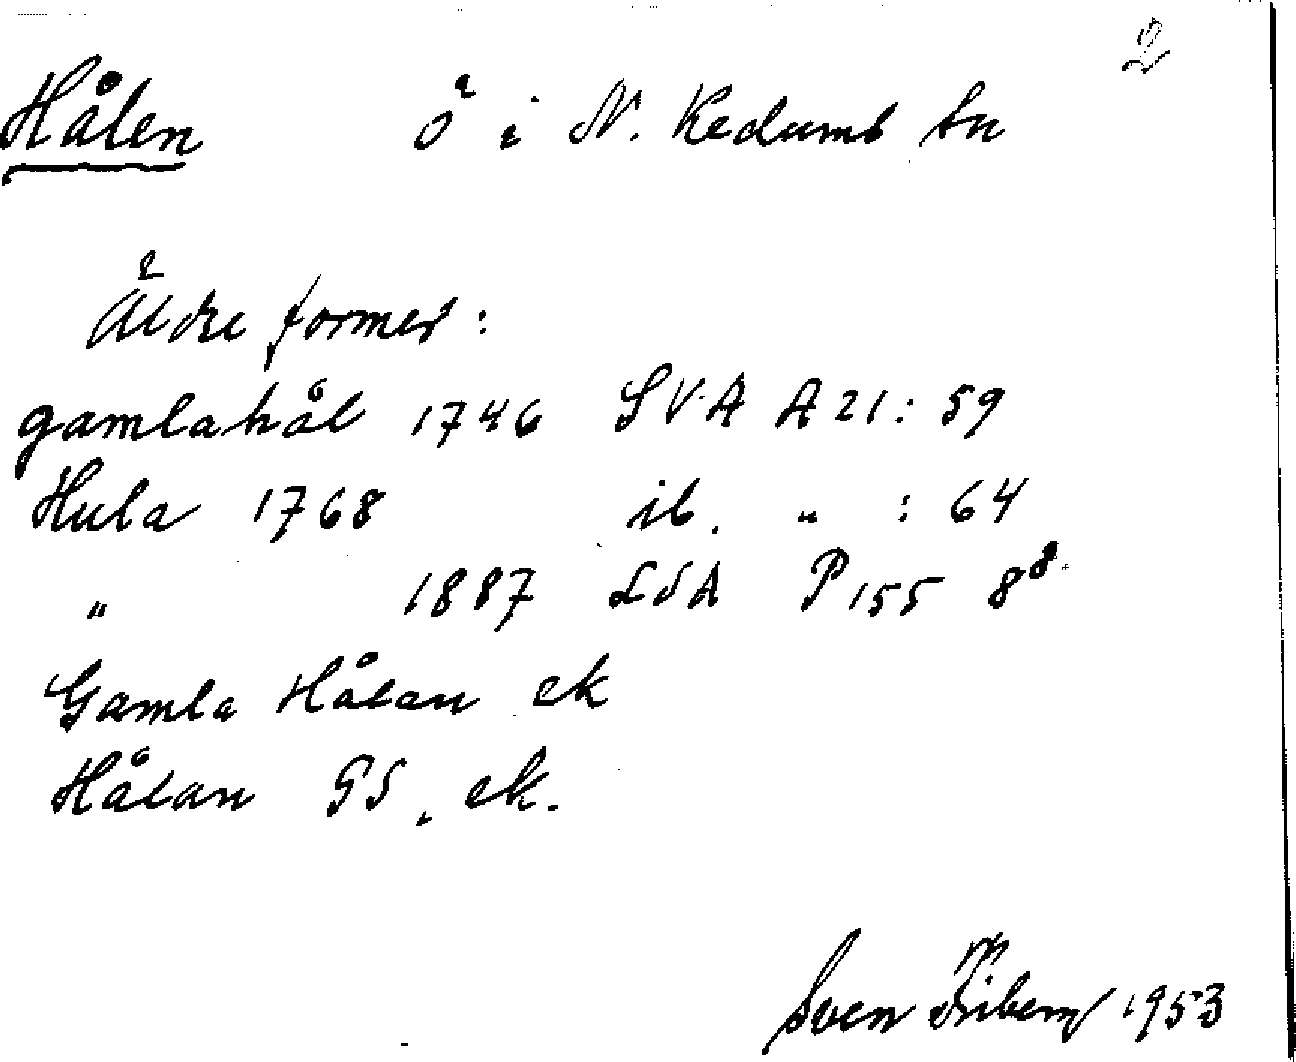 2
Hålen ö i N. Kedums sn
Äldre former:
gamlahål 1746 SVA A 21: 59
Hula 1768 ib. " : 64
" 1887 LSA P 155 8⁸
Gamla Hålan ek
Hålan GS. ek.
Sven Friberg 1953